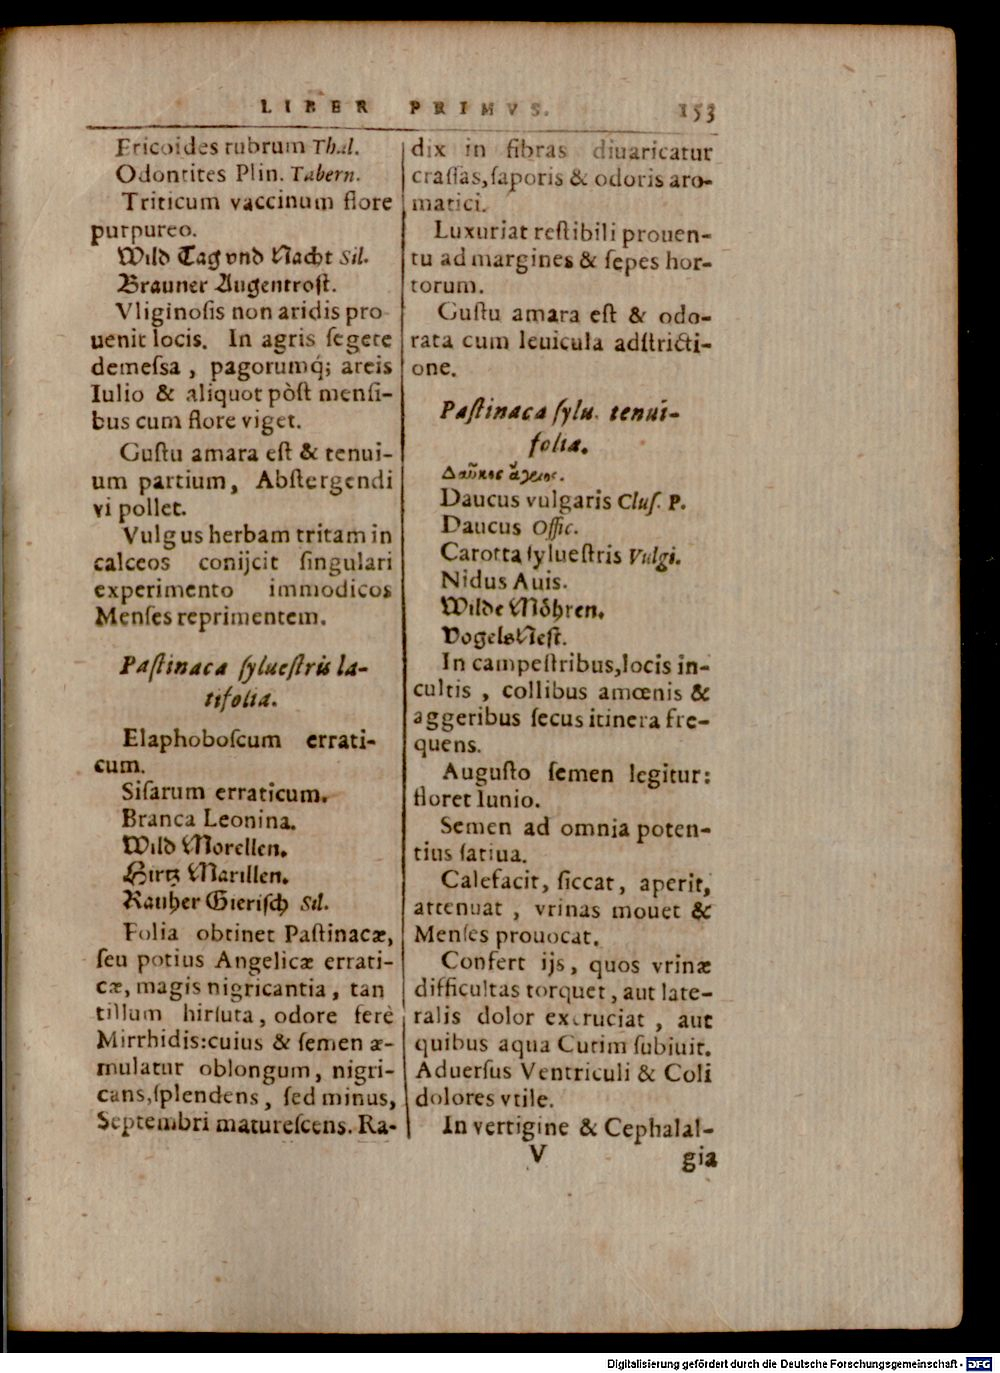 LIBER PRIMVS. 153
Ericoides rubrum Thal.
Odontites Plin. Tabern.
Triticum vaccinum flore
purpureo.
Wild Tag vnd Nacht Sil.
Brauner Augentroſt.
Vliginoſis non aridis pro
uenit locis. In agris ſegete
demeſſa, pagorumq́; areis
Iulio & aliquot pòſt menſi-
bus cum flore viget.
Guſtu amara eſt & tenui-
um partium, Abſtergendi
vi pollet.
Vulgus herbam tritam in
calceos conijcit ſingulari
experimento immodicos
Menſes reprimentem.
Paſtinaca ſylueſtris la-
tifolia.
Elaphoboſcum errati-
cum.
Siſarum erraticum.
Branca Leonina.
Wild Morellen.
Hirtz Marillen.
Rauher Gieriſch Sil.
Folia obtinet Paſtinacæ,
ſeu potius Angelicæ errati-
cæ, magis nigricantia, tan
tillum hirſuta, odore ferè
Mirrhidis: cuius & ſemen æ-
mulatur oblongum, nigri-
cans, ſplendens, ſed minus,
Septembri matureſcens. Ra-
dix in fibras diuaricatur
craſſas, ſaporis & odoris aro-
matici.
Luxuriat reſtibili prouen-
tu ad margines & ſepes hor-
torum.
Guſtu amara eſt & odo-
rata cum leuicula adſtricti-
one.
Paſtinaca ſylu. tenui-
folia.
Δαῦκος ἄγριος.
Daucus vulgaris Cluſ. P.
Daucus Offic.
Carotta ſylueſtris Vulgi.
Nidus Auis.
Wilde Möhren.
VogelsNeſt.
In campeſtribus, locis in-
cultis, collibus amœnis &
aggeribus ſecus itinera fre-
quens.
Auguſto ſemen legitur:
floret Iunio.
Semen ad omnia poten-
tius ſatiua.
Calefacit, ſiccat, aperit,
attenuat, vrinas mouet &
Menſes prouocat.
Confert ijs, quos vrinæ
difficultas torquet, aut late-
ralis dolor excruciat, aut
quibus aqua Cutim ſubiuit.
Aduerſus Ventriculi & Coli
dolores vtile.
In vertigine & Cephalal-
V gia
Digitalisierung gefördert durch die Deutsche Forschungsgemeinschaft - DFG